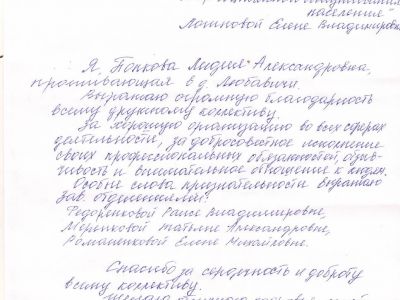 населения"
Елене Владимировне
Я, Попкова Лидия Александровна,
проживающая в д. Любавичи.
Выражаю огромную благодарность
всему дружному коллективу.
За хорошую организацию во всех сферах
деятельности, за добросовестное исполнение
своих профессиональных обязанностей, отзыв-
чивость и внимательное отношение к людям.
Особые слова признательности выражаю
зав. отделениями:
Федоренковой Раисе Владимировне,
Меренковой Татьяне Александровне,
Романенковой Елене Михайловне.
Спасибо за сердечность и доброту
всему коллективу.